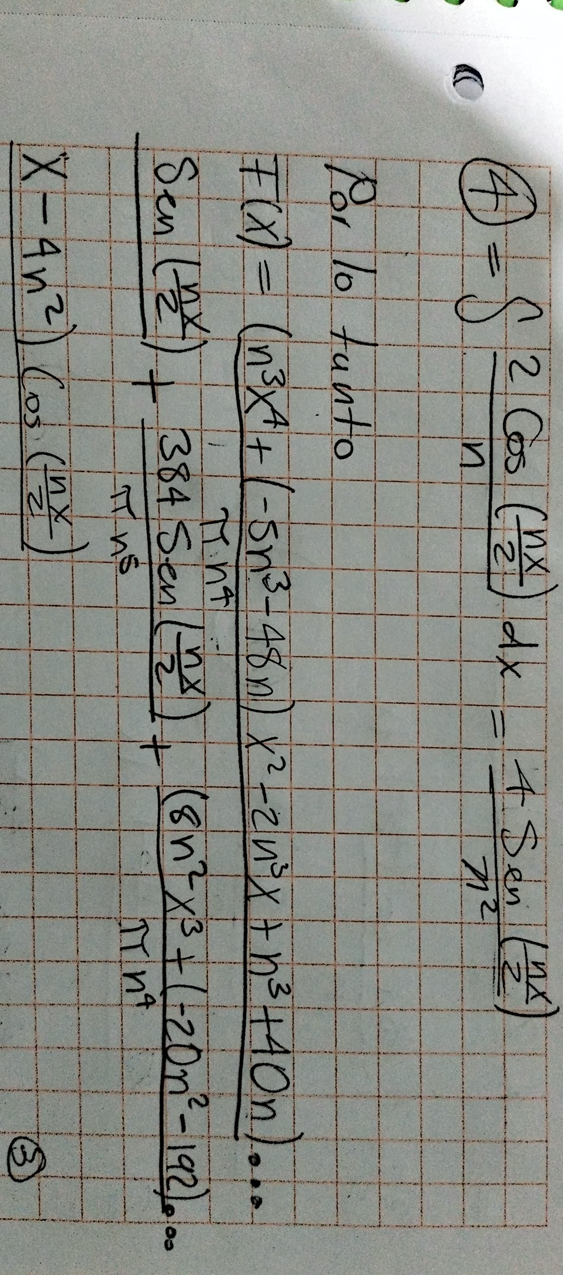 ④ = ∫ 2 Cos (nx/2) / n dx = 4 Sen (nx/2) / n²
Por lo tanto
F(x) = (n³x⁴ + (-5n³-48n) x² - 2n³x + n³ + 40n)... / πn⁴
Sen (nx/2) + 384 Sen (nx/2) / πn⁵ + (8n²x³ + (-20n²-192)... / πn⁴
x - 4n²) Cos (nx/2)
③